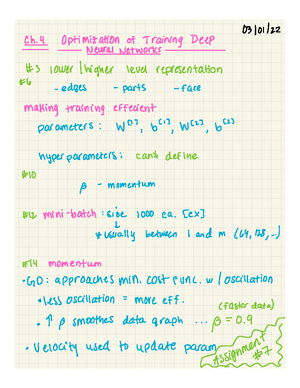 03/01/22
Ch.4 Optimization of Training Deep
Neural Networks
#3 lower/higher level representation
#6
- edges - parts - face
making training effecient
parameters: W[1], b[1], W[2], b[2]
hyperparameters: can't define
#10
β - momentum
#12 mini-batch: size 1000 ea. [ex]
↳ usually between 1 and m (64, 128, ..)
#14 momentum
•GD: approaches min. cost func. w/ oscillation
•less oscillation = more eff.
(faster data)
•↑ β smoothes data graph ... β = 0.9
• Velocity used to update param
Assignment
#7